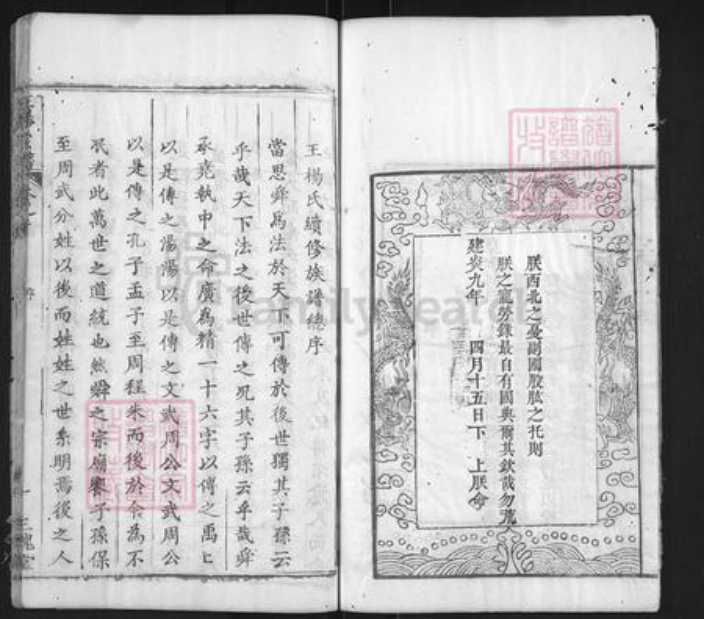 朕西北之憂副國股肱之托則
朕之寵勞錄最自有國典爾其欽哉勿荒
建炎九年 四月十五日下 上朕命
王楊氏續修族譜總序
當思舜為法於天下可傳於後世獨其子孫云
乎哉天下法之後世傳之況其子孫云乎哉舜
承堯執中之命廣為精一十六字以傳之禹禹
以是傳之湯湯以是傳之文武周公文武周公
以是傳之孔子孟子至周程朱而後於今為不
泯者此萬世之道統也然舜之宗廟饗子孫保
至周武分姓以後而姓姓之世系明焉後之人
序
一 三槐堂
FamilySearch